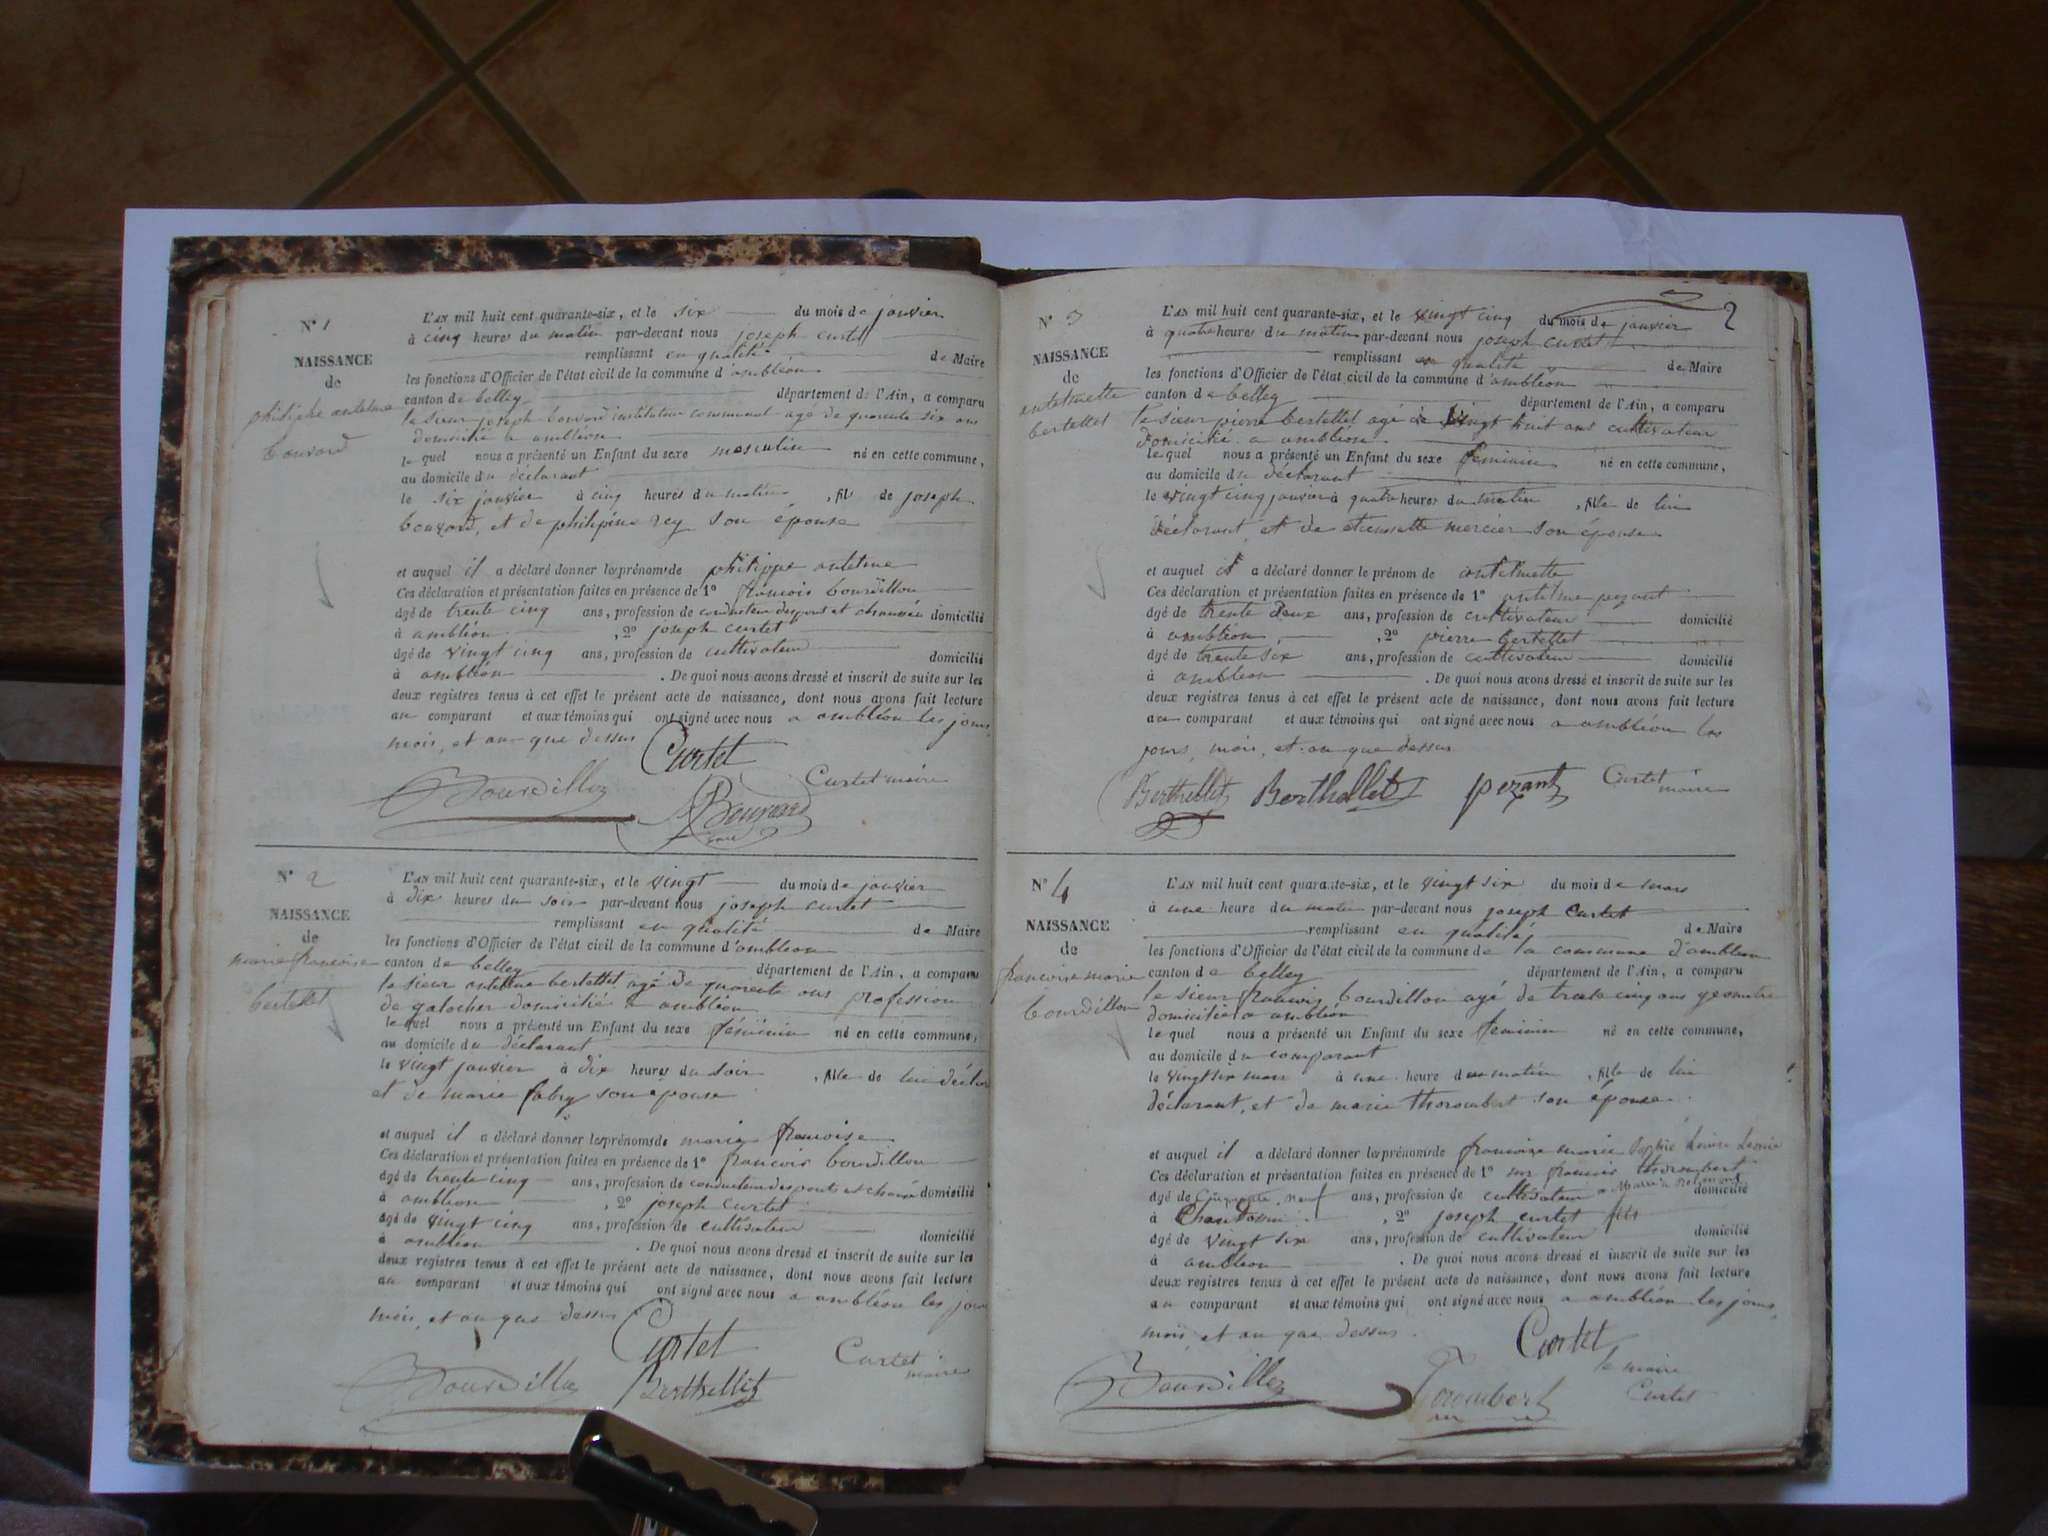 N° 1
NAISSANCE
de
philiphe antelme
bouvard
L'AN mil huit cent quarante-six, et le six du mois de janvier
à cinq heures du matin par-devant nous joseph curtet
remplissant en qualité de Maire
les fonctions d'Officier de l'état civil de la commune d'ambléon
canton de belley département de l'Ain, a comparu
le sieur joseph bouvard instituteur communal agé de quarante six ans
domicilié a ambléon
le quel nous a présenté un Enfant du sexe masculin né en cette commune,
au domicile du déclarant
le six janvier à cinq heures du matin, fils de joseph
bouvard, et de philipine rey son épouse
et auquel il a déclaré donner les prénoms de philippe antelme
Ces déclaration et présentation faites en présence de 1° francois bourdillon
âgé de trente cinq ans, profession de conducteur des ponts et chaussée domicilié
à ambléon, 2° joseph curtet
âgé de vingt cinq ans, profession de cultivateur domicilié
à ambléon. De quoi nous avons dressé et inscrit de suite sur les
deux registres tenus à cet effet le présent acte de naissance, dont nous avons fait lecture
au comparant et aux témoins qui ont signé avec nous a ambléon les jours,
mois, et an que dessus
Curtet
Bourdillon
Curtet maire
N° 2
NAISSANCE
de
marie francoise
bertellet
L'AN mil huit cent quarante-six, et le vingt du mois de janvier
à dix heures du soir par-devant nous joseph curtet
remplissant en qualité de Maire
les fonctions d'Officier de l'état civil de la commune d'ambleon
canton de belley département de l'Ain, a comparu
le sieur antelme bertellet agé de quarente ans profession
de galocher domicilié a ambléon
le quel nous a présenté un Enfant du sexe féminin né en cette commune,
au domicile du déclarant
le vingt janvier à dix heures du soir, fille de lui déclar
et de marie fabry son épouse
et auquel il a déclaré donner les prénoms de marie francoise
Ces déclaration et présentation faites en présence de 1° francois bourdillon
âgé de trente cinq ans, profession de conducteur des ponts et chaussé domicilié
à ambléon, 2° joseph curtet
âgé de vingt cinq ans, profession de cultivateur domicilié
à ambléon. De quoi nous avons dressé et inscrit de suite sur les
deux registres tenus à cet effet le présent acte de naissance, dont nous avons fait lecture
au comparant et aux témoins qui ont signé avec nous a ambléon les jours
mois, et an que dessus
Curtet
Bourdillon Berthellet
Curtet
maire
2
N° 3
NAISSANCE
de
antelmette
bertellet
L'AN mil huit cent quarante-six, et le vingt cinq du mois de janvier
à quatre heures du matin par-devant nous joseph curtet
remplissant en qualité de Maire
les fonctions d'Officier de l'état civil de la commune d'ambléon
canton de belley département de l'Ain, a comparu
le sieur pierre bertellet agé de vingt huit ans cultivateur
domicilié a ambléon
le quel nous a présenté un Enfant du sexe feminin né en cette commune,
au domicile du déclarant
le vingt cinq janvier à quatre heures du matin, fille de lui
déclarant, et de etiennette mercier son épouse
et auquel il a déclaré donner le prénom de antelmette
Ces déclaration et présentation faites en présence de 1° antelme pezant
âgé de trente deux ans, profession de cultivateur domicilié
à ambléon, 2° pierre bertellet
âgé de trente six ans, profession de cultivateur domicilié
à ambléon. De quoi nous avons dressé et inscrit de suite sur les
deux registres tenus à cet effet le présent acte de naissance, dont nous avons fait lecture
au comparant et aux témoins qui ont signé avec nous a ambléon les
jours, mois, et an que dessus
Berthellet Berthellet pezant Curtet
maire
N° 4
NAISSANCE
de
francoise marie
bourdillon
L'AN mil huit cent quarante-six, et le vingt six du mois de mars
à une heure du matin par-devant nous joseph Curtet
remplissant en qualité de Maire
les fonctions d'Officier de l'état civil de la commune de la commune d'ambleon
canton de belley département de l'Ain, a comparu
le sieur francois bourdillon agé de trente cinq ans geometre
domicilié a ambléon
le quel nous a présenté un Enfant du sexe feminin né en cette commune,
au domicile du comparant
le vingt six mars à une heure du matin, fille de lui
déclarant, et de marie thorombert son épouse
et auquel il a déclaré donner les prénoms de francoise marie Sophie Louise Leonie
Ces déclaration et présentation faites en présence de 1° francois thorombert
âgé de Cinquante neuf ans, profession de cultivateur domicilié
à, 2° joseph curtet fils
âgé de vingt six ans, profession de cultivateur domicilié
à ambleon. De quoi nous avons dressé et inscrit de suite sur les
deux registres tenus à cet effet le présent acte de naissance, dont nous avons fait lecture
au comparant et aux témoins qui ont signé avec nous a ambléon les jours,
mois, et an que dessus.
Curtet
Bourdillon Torombert
le maire
Curtet